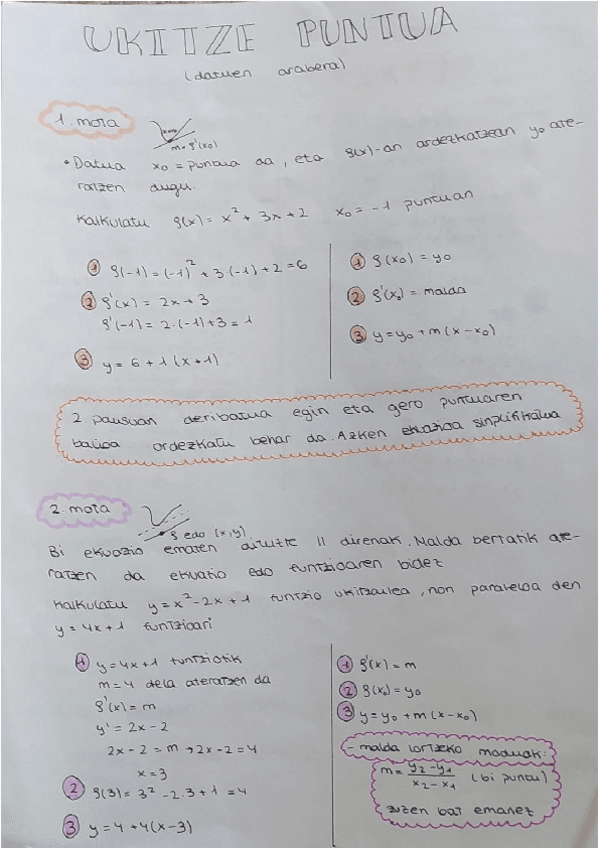 UKITZE PUNTUA
(datuen arabera)
1. mota
m = g'(x0)
• Datua x0 = puntua da, eta g(x)-an ordezkatzean y0 ate-
ratzen dugu.
Kalkulatu g(x) = x² + 3x + 2 x0 = -1 puntuan
① g(-1) = (-1)² + 3(-1) + 2 = 6
② g'(x) = 2x + 3
g'(-1) = 2·(-1) + 3 = 1
③ y = 6 + 1(x + 1)
① g(x0) = y0
② g'(x0) = malda
③ y = y0 + m(x - x0)
2. pausuan deribatua egin eta gero puntuaren
balioa ordezkatu behar da. Azken ekuazioa sinplifikatua
2. mota
g edo (x,y)
Bi ekuazio ematen dituzte || direnak. Malda bertatik ate-
ratzen da ekuazio edo funtzioaren bidez
Kalkulatu y = x² - 2x + 1 funtzio ukitzailea, non paraleloa den
y = 4x + 1 funtzioari
① y = 4x + 1 funtziotik
m = 4 dela ateratzen da
g'(x) = m
y' = 2x - 2
2x - 2 = m → 2x - 2 = 4
x = 3
② g(3) = 3² - 2·3 + 1 = 4
③ y = 4 + 4(x - 3)
① g'(x) = m
② g(x0) = y0
③ y = y0 + m(x - x0)
- malda lortzeko moduak:
m = (y2 - y1)/(x2 - x1) (bi puntu)
zuzen bat emanez